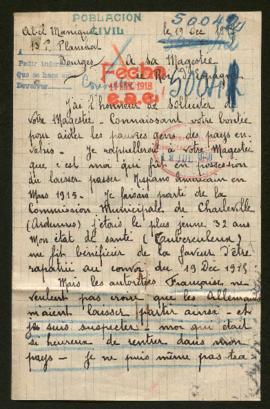 POBLACION
CIVIL
Abel
le 19 Dec
13 Pl Planchat
Bourges
à sa Majestée
le Roi d'Espagne
Fecha
1918
J'ai l'honneur de Solliciter de
Votre Majestée - Connaissant votre bontée
pour aider les pauvres gens des pays en-
vahis - Je rappellerai à Votre Majestée
que c'est moi qui fut en possession
du laisser passer Hispano americain en
Mars 1915 - Je faisais partie de la
Commission Municipale de Charleville
(Ardennes) j'étais le plus jeune 32 ans
Mon état de santé (Tuberculeux) me
fit bénéficier de la faveur d'être
rapatrié au convoi du 19 Dec 1915
Mais les autoritées Française ne
veulent pas croire que les Allemands
m'aient laisser partir ainsi - et
je suis suspecter - moi qui était
si heureux de rentrer dans mon
pays - je ne puis même pas